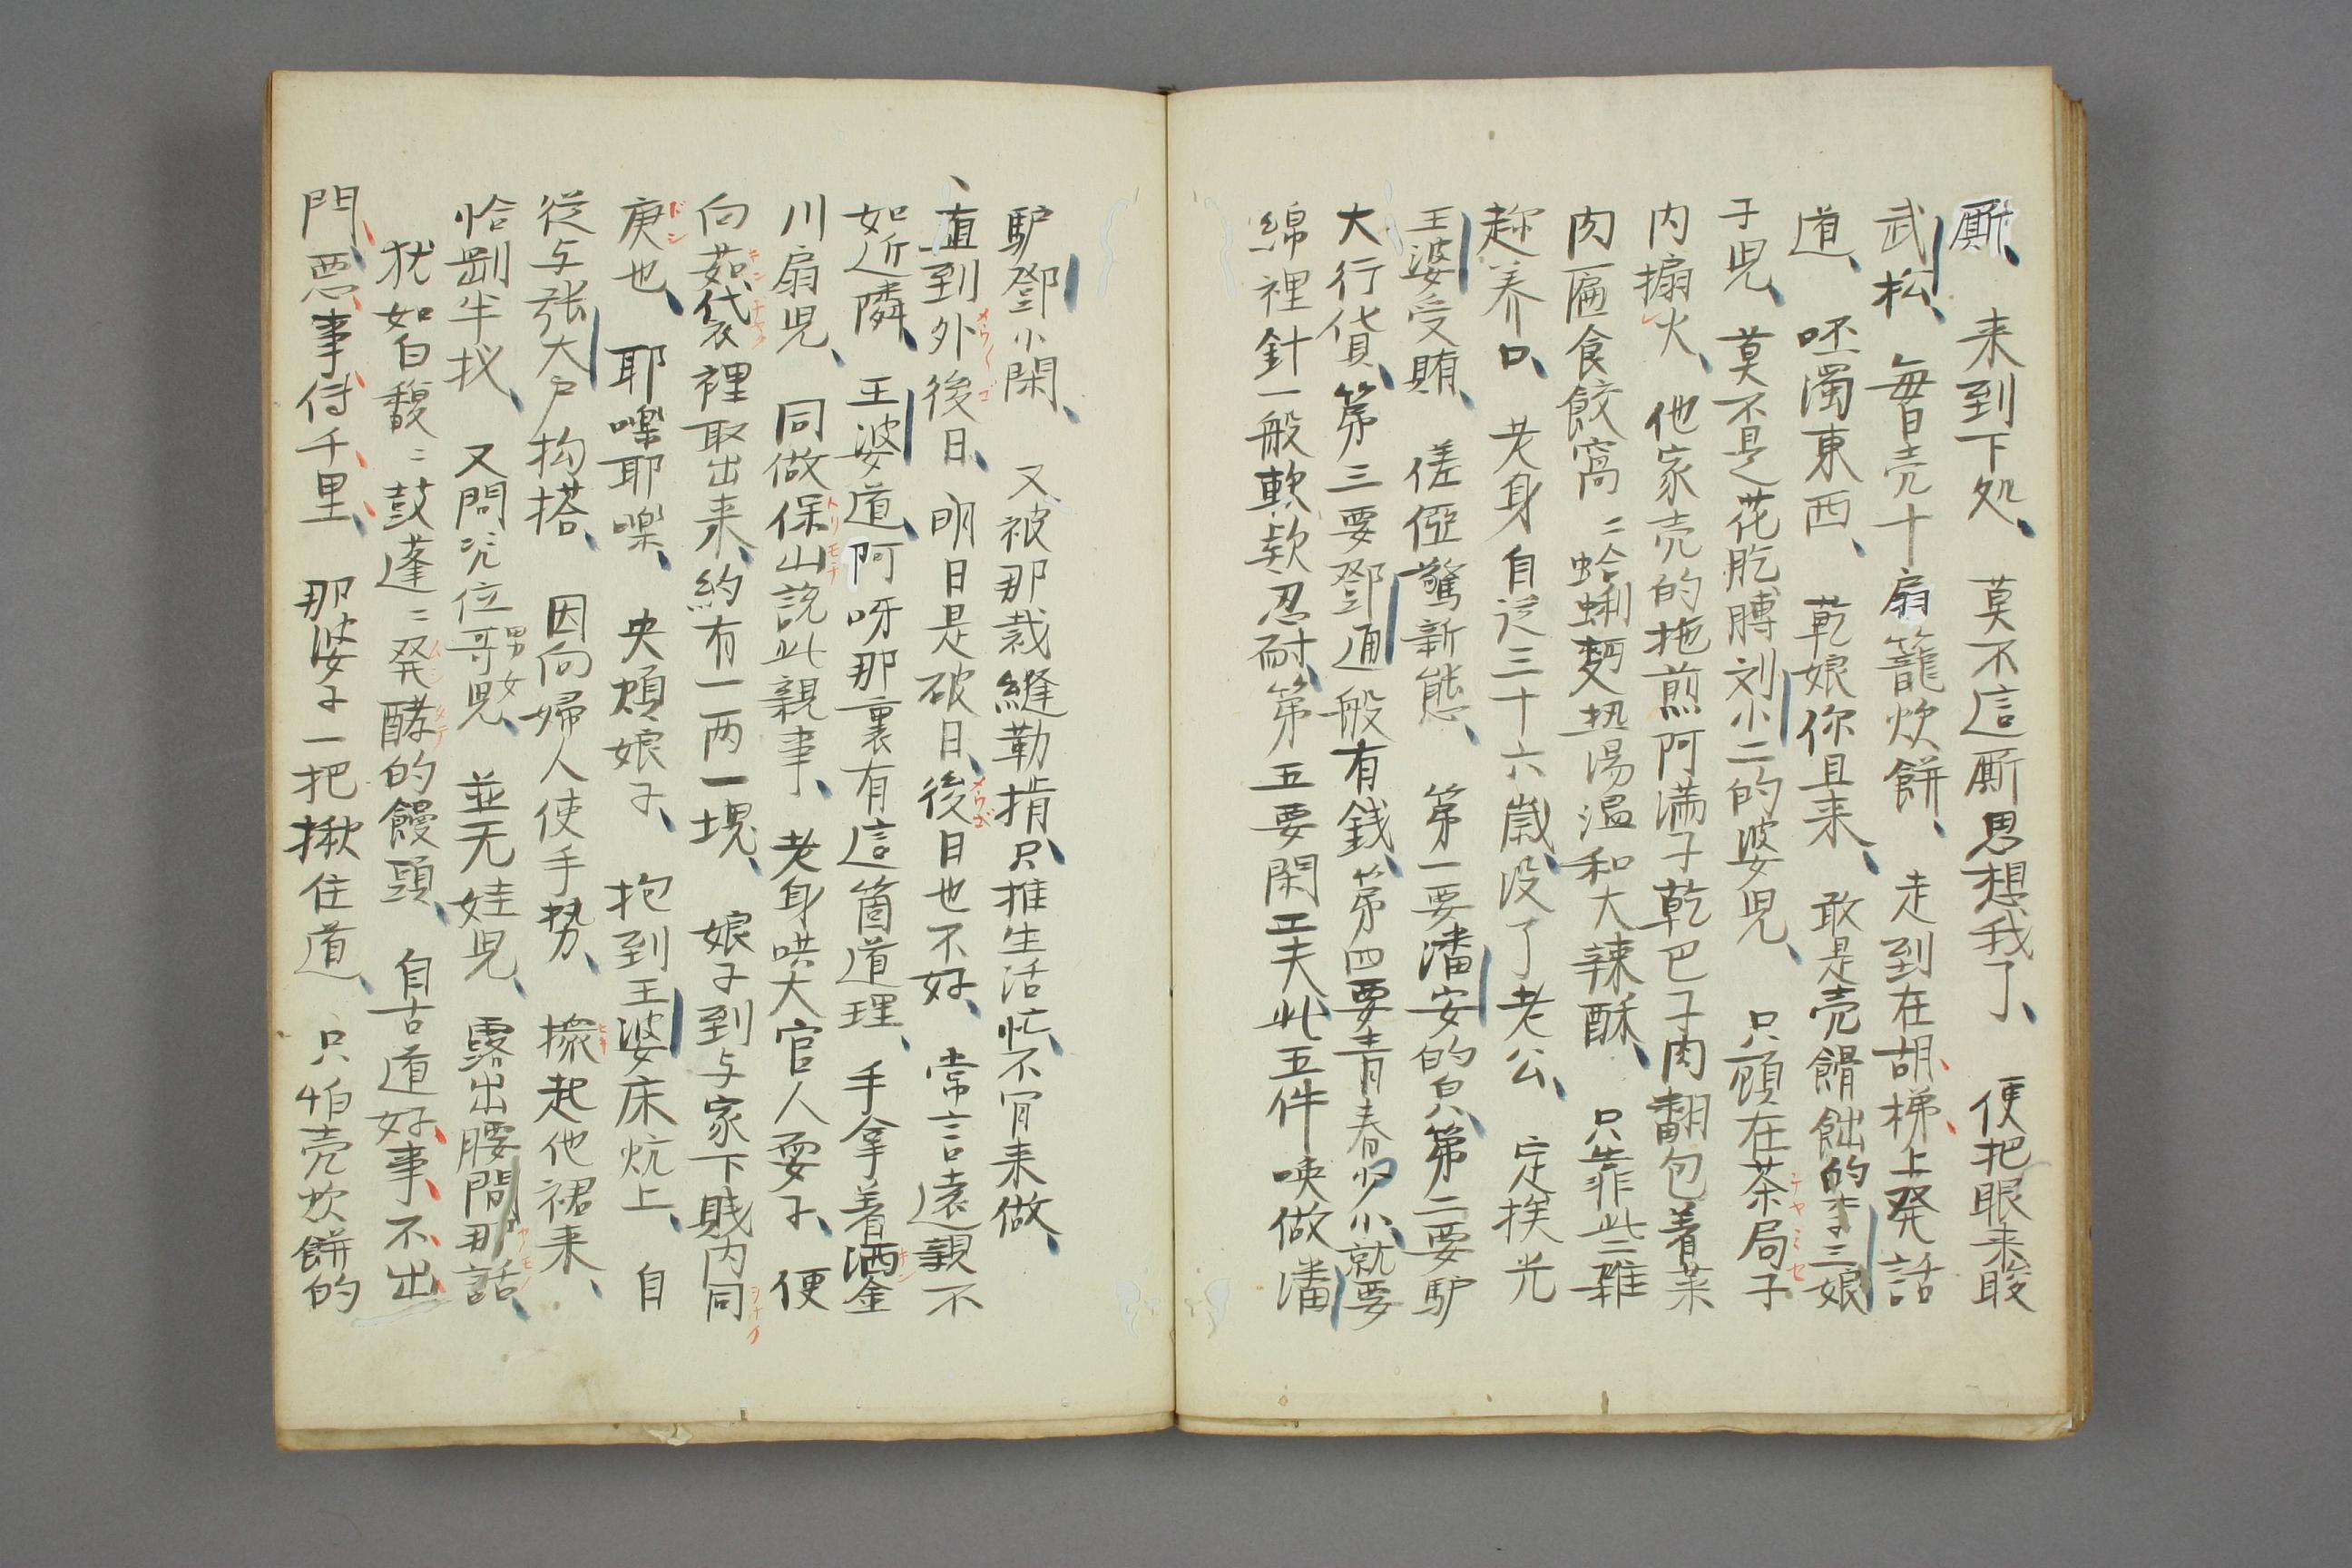 厮、来到下処、莫不這厮思想我了、便把眼来睃
武松、毎日売十扇籠炊餅、走到在胡梯上発話
道、呸濁東西、乾娘你且来、敢是売餶飿的李三娘
子児、莫不是花胳膊刘小二的婆児、只顧在茶局子
内搧火、他家売的拖煎阿満子乾巴子肉翻包着菜
肉匾食餃窩〻蛤蜊麪热湯温和大辣酥、只靠此二雜
趂养口、老身自従三十六歳没了老公、定挨光
王婆受賄、偖㑘驚新態、第一要潘安的皃、第二要馿
大行貨、第三要鄧通般有銭、第四要青春少小、就要
綿裡針一般軟款忍耐、第五要閑工夫此五件喚做潘
馿鄧小閑、又被那裁縫勒掯、只推生活忙、不肎来做、
直到外後日、明日是破日、後日也不好、常言遠親不
如近隣、王婆道、阿呀那裏有這箇道理、手拿着洒金
川扇児、同做保山説此親事、老身哄大官人耍子、便
向茹袋裡取出来、約有一両一塊、娘子到与家下賎内同
庚也、耶嚛耶嚛、央煩娘子、抱到王婆床炕上、自
従与張大戸抅搭、因向婦人使手势、攥起他裙来、
恰剛半扠、又問㡬位哥児、並无娃児、露出腰間那話、
犹如白馥〻鼓蓬〻発酵的饅頭、自古道好事不出
門、悪事传千里、那婆子一把揪住道、只怕売炊餅的